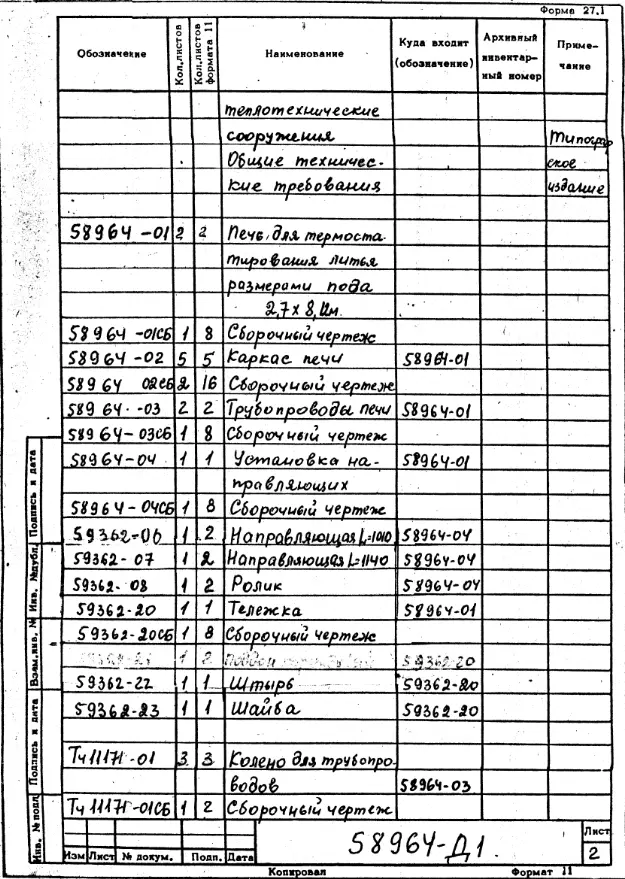 Форма 27.1
Обозначение Кол.листов Кол.листов формата 11 Наименование Куда входит (обозначение) Архивный инвентар-ный номер Приме-чание
теплотехнические
сооружения Типограф
Общие техничес- ское
кие требования издание
58964-01 2 2 Печь для термоста-
тирования литья
размерами пода
2,7х8,
58964-01СБ 1 8 Сборочный чертеж
58964-02 5 5 Каркас печи 58964-01
58964 02СБ 2 16 Сборочный чертеж
58964-03 2 2 Трубопроводы печи 58964-01
58964-03СБ 1 8 Сборочный чертеж
58964-04 1 1 Установка на- 58964-01
правляющих
58964-04СБ 1 8 Сборочный чертеж
59362-06 1 2 Направляющая L=1010 58964-04
59362-07 1 2 Направляющая L=1140 58964-04
59362-08 1 2 Ролик 58964-04
59362-20 1 1 Тележка 58964-01
59362-20СБ 1 8 Сборочный чертеж
1 2 59362-20
59362-22 1 1 Штырь 59362-20
59362-23 1 1 Шайба 59362-20
Тч11171-01 3 3 Колено для трубопро-
водов 58964-03
Тч11171-01СБ 1 2 Сборочный чертеж
Инв. № подл
Подпись и дата
Взам.инв. №
Инв. №дубл.
Подпись и дата
Изм Лист № докум. Подп. Дата
58964-Д1.
Лист
2
Копировал Формат 11